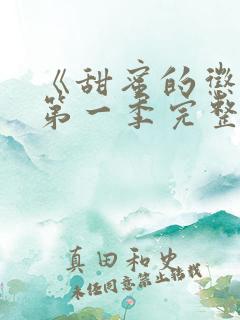 《甜蜜的惩
第一季完整
真田和史
未经同意禁止转载